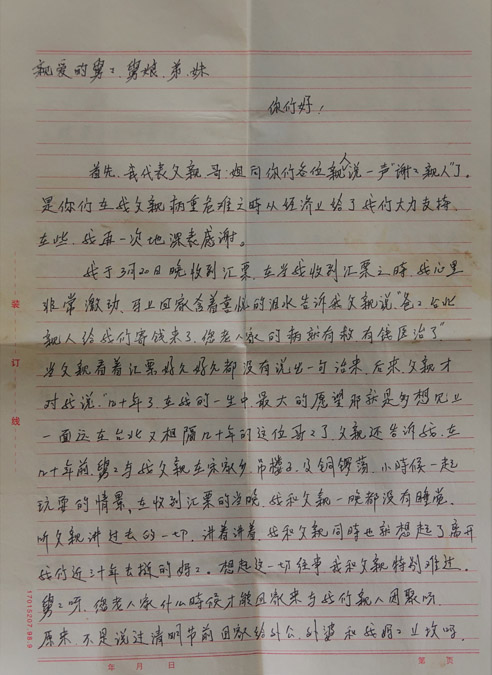 亲爱的舅々、舅娘、弟、妹
你们好!
首先、我代表父亲、哥、姐向你们各位亲人说一声“谢々亲人”了。
是你们在我父亲病重危难之时从经济上给了我们大力支持、
在此、我再一次地深表感谢。
我于3月20日晚收到汇票、在当我收到汇票之时、我心里
非常激动、马上回家含着喜悦的泪水告诉我父亲说“爸々台北
亲人给我们寄钱来了、您老人家的病就有救有钱医治了”
当父亲看着汇票好久好久都没有说出一句话来、后来、父亲才
对我说:“几十年了、在我的一生中、最大的愿望那就是多想见上
一面远在台北又相隔几十年的这位哥々了、父亲还告诉我、在
几十年前、舅々与我父亲在宋家乡、吊楼子、及铜锣荡、小时候一起
玩耍的情景、在收到汇票的当晚、我和父亲一晚都没有睡觉、
听父亲讲过去的一切、讲着讲着、我和父亲同时也就想起了离开
我们近三十年去世的妈々。想起这一切往事我和父亲特别难过、
舅々呀、您老人家什么时候才能回家来与我们亲人团聚呀、
原来、不是说过清明节前回家给外公、外婆和我妈々上坟吗、
装
订
线
17015207.98.9
年 月 日
第 页